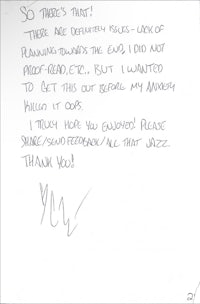 SO THERE'S THAT!
THERE ARE DEFINITELY ISSUES - LACK OF
PLANNING TOWARDS THE END, I DID NOT
PROOF-READ, ETC.. BUT I WANTED
TO GET THIS OUT BEFORE MY ANXIETY
KILLED IT OOPS
I TRULY HOPE YOU ENJOYED! PLEASE
SHARE/SEND FEEDBACK/ALL THAT JAZZ
THANK YOU!